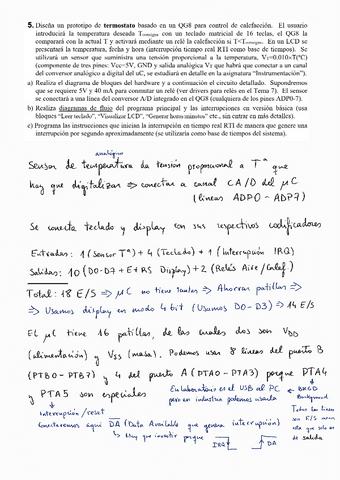 5. Diseña un prototipo de termostato basado en un QG8 para control de calefacción. El usuario
introducirá la temperatura deseada Tconsigna con un teclado matricial de 16 teclas, el QG8 la
comparará con la actual T y activará mediante un relé la calefacción si T<Tconsigna. En un LCD se
presentará la temperatura, fecha y hora (interrupción tiempo real RTI como base de tiempos). Se
utilizará un sensor que suministra una tensión proporcional a la temperatura, Vt=0.010×T(ºC)
(componente de tres pines: Vcc=5V, GND y salida analógica Vt que habrá que conectar a un canal
del conversor analógico a digital del uC, se estudiará en detalle en la asignatura "Instrumentación").
a) Realiza el diagrama de bloques del hardware y a continuación el circuito detallado. Supondremos
que se requiere 5V y 40 mA para conmutar un relé (ver drivers para relés en el Tema 7). El sensor
se conectará a una línea del conversor A/D integrado en el QG8 (cualquiera de los pines ADP0-7).
b) Realiza diagramas de flujo del programa principal y las interrupciones en versión básica (usa
bloques "Leer teclado", "Visualizar LCD", "Generar hora minutos" etc., sin entrar en más detalles).
c) Programa las instrucciones que inician la interrupción en tiempo real RTI de manera que genere una
interrupción por segundo aproximadamente (se utilizaría como base de tiempos del sistema).
analógico
Sensor de temperatura da tensión proporcional a Tª que
hay que digitalizar ⇒ conectar a canal CA/D del μC
(líneas ADP0 - ADP7)
Se conecta teclado y display con sus respectivos codificadores
Entradas: 1 (Sensor Tª) + 4 (Teclado) + 1 (Interrupción IRQ)
Salidas: 10 (D0-D7 + E + RS Display) + 2 (Relés Aire/Calef.)
Total: 18 E/S ⇒ μC no tiene tantas ⇒ Ahorrar patillas ⇒
⇒ Usamos display en modo 4 bit (Usamos D0-D3) ⇒ 14 E/S
El μC tiene 16 patillas, de las cuales dos son VDD
(alimentación) y VSS (masa). Podemos usar 8 líneas del puerto B
(PTB0 - PTB7) y 4 del puerto A (PTA0 - PTA3) porque PTA4
y PTA5 son especiales
En laboratorio es el USB al PC
pero en industria podemos usarla
BKGD
Background
Interrupción / reset
Conectaremos aquí DA (Data Available que genera interrupción)
↳ Hay que invertir porque IRQ DA
Todas las líneas
son E/S menos
ella que solo es
de salida